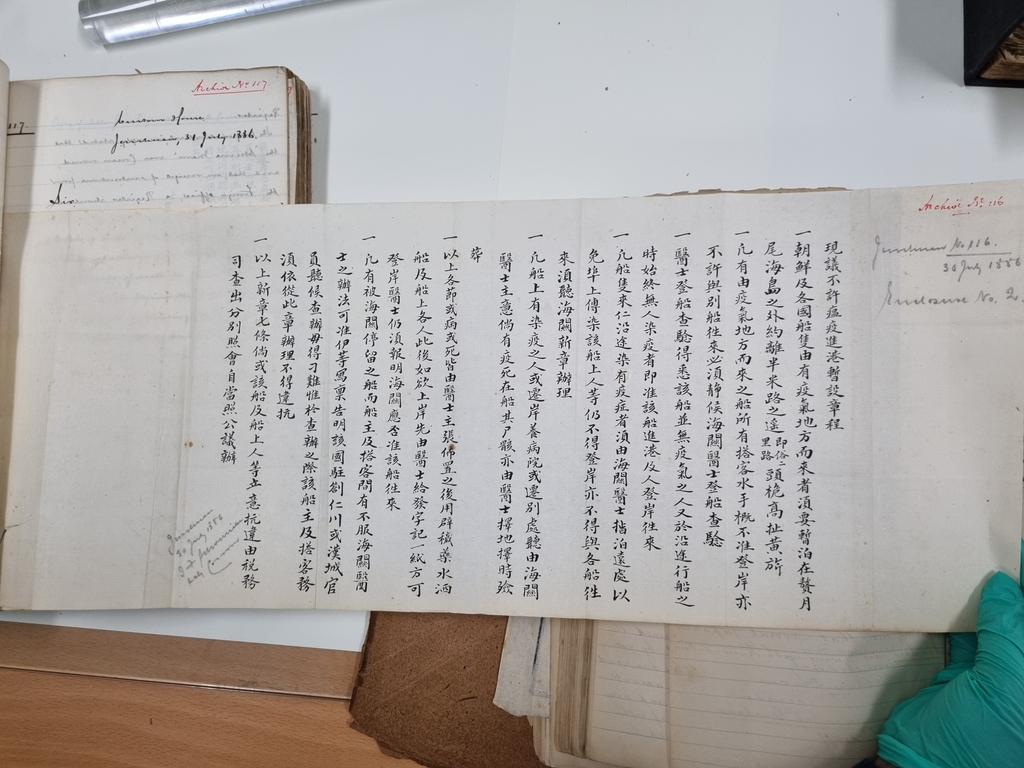 Archive No. 117.
117
Custom House
Jenchuan, 31 July 1886.
Sir
Archive No. 116
Jenchuan No. 116.
30 July 1886
Enclosure No. 2.
現議不許瘟疫進港暫設章程
一朝鮮及各國船隻由有疫氣地方而來者須要暫泊在嶅月
尾海島之外約離半米路之遙即俗二里路頭桅高扯黃旂
一凡有由疫氣地方而來之船所有搭客水手概不准登岸亦
不許與別船徃來必須静候海關醫士登船查驗
一醫士登船查驗得悉該船並無疫氣之人又於沿途行船之
時始終無人染疫者即准該船進港及人登岸徃來
一凡船隻來仁沿途染有疫症者須由海關醫士揩泊遠處以
免埠上傳染該船上人等仍不得登岸亦不得與各船徃
來須聽海關新章辦理
一凡船上有染疫之人或遷岸養病院或遷別處聽由海關
醫士主意倘有疫死在船其尸骸亦由醫士擇地擇時殮
葬
一以上各節或病或死皆由醫士主張佈置之後用辟穢藥水洒
船及船上各人此後如欲上岸先由醫士給發字記一紙方可
登岸醫士仍須報明海關應否准該船徃來
一凡有被海關停留之船而船主及搭客間有不服海關醫
士之辦法可准伊等寓禀告明該國駐劄仁川或漢城官
員聽候查辦毋得刁難惟於查辦之際該船主及搭客務
須依從此章辦理不得違抗
一以上新章七條倘或該船及船上人等立意抗違由税務
司查出分別照會自當照公議辦
Jenchuan
30 July 1886